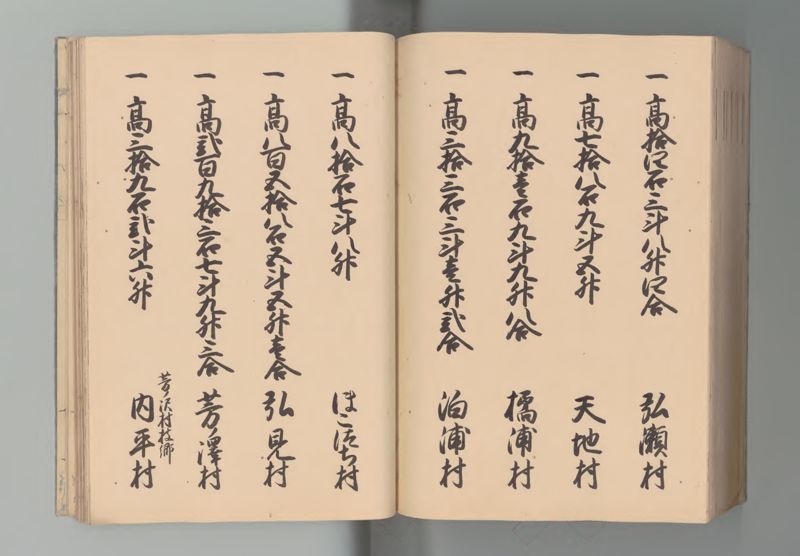 一 高拾四石三斗八升四合 弘瀬村
一 高七拾八石九斗五升 天地村
一 高九拾壱石九斗九升八合 橘浦村
一 高三拾三石三斗壱升弐合 泊浦村
一 高八拾石七斗八升 ほこ土ち村
一 高八百五拾八石五斗五升壱合 弘見村
一 高弐百九拾三石七斗九升三合 芳澤村
芳ノ沢村枝郷
一 高三拾九石弐斗六升 内平村